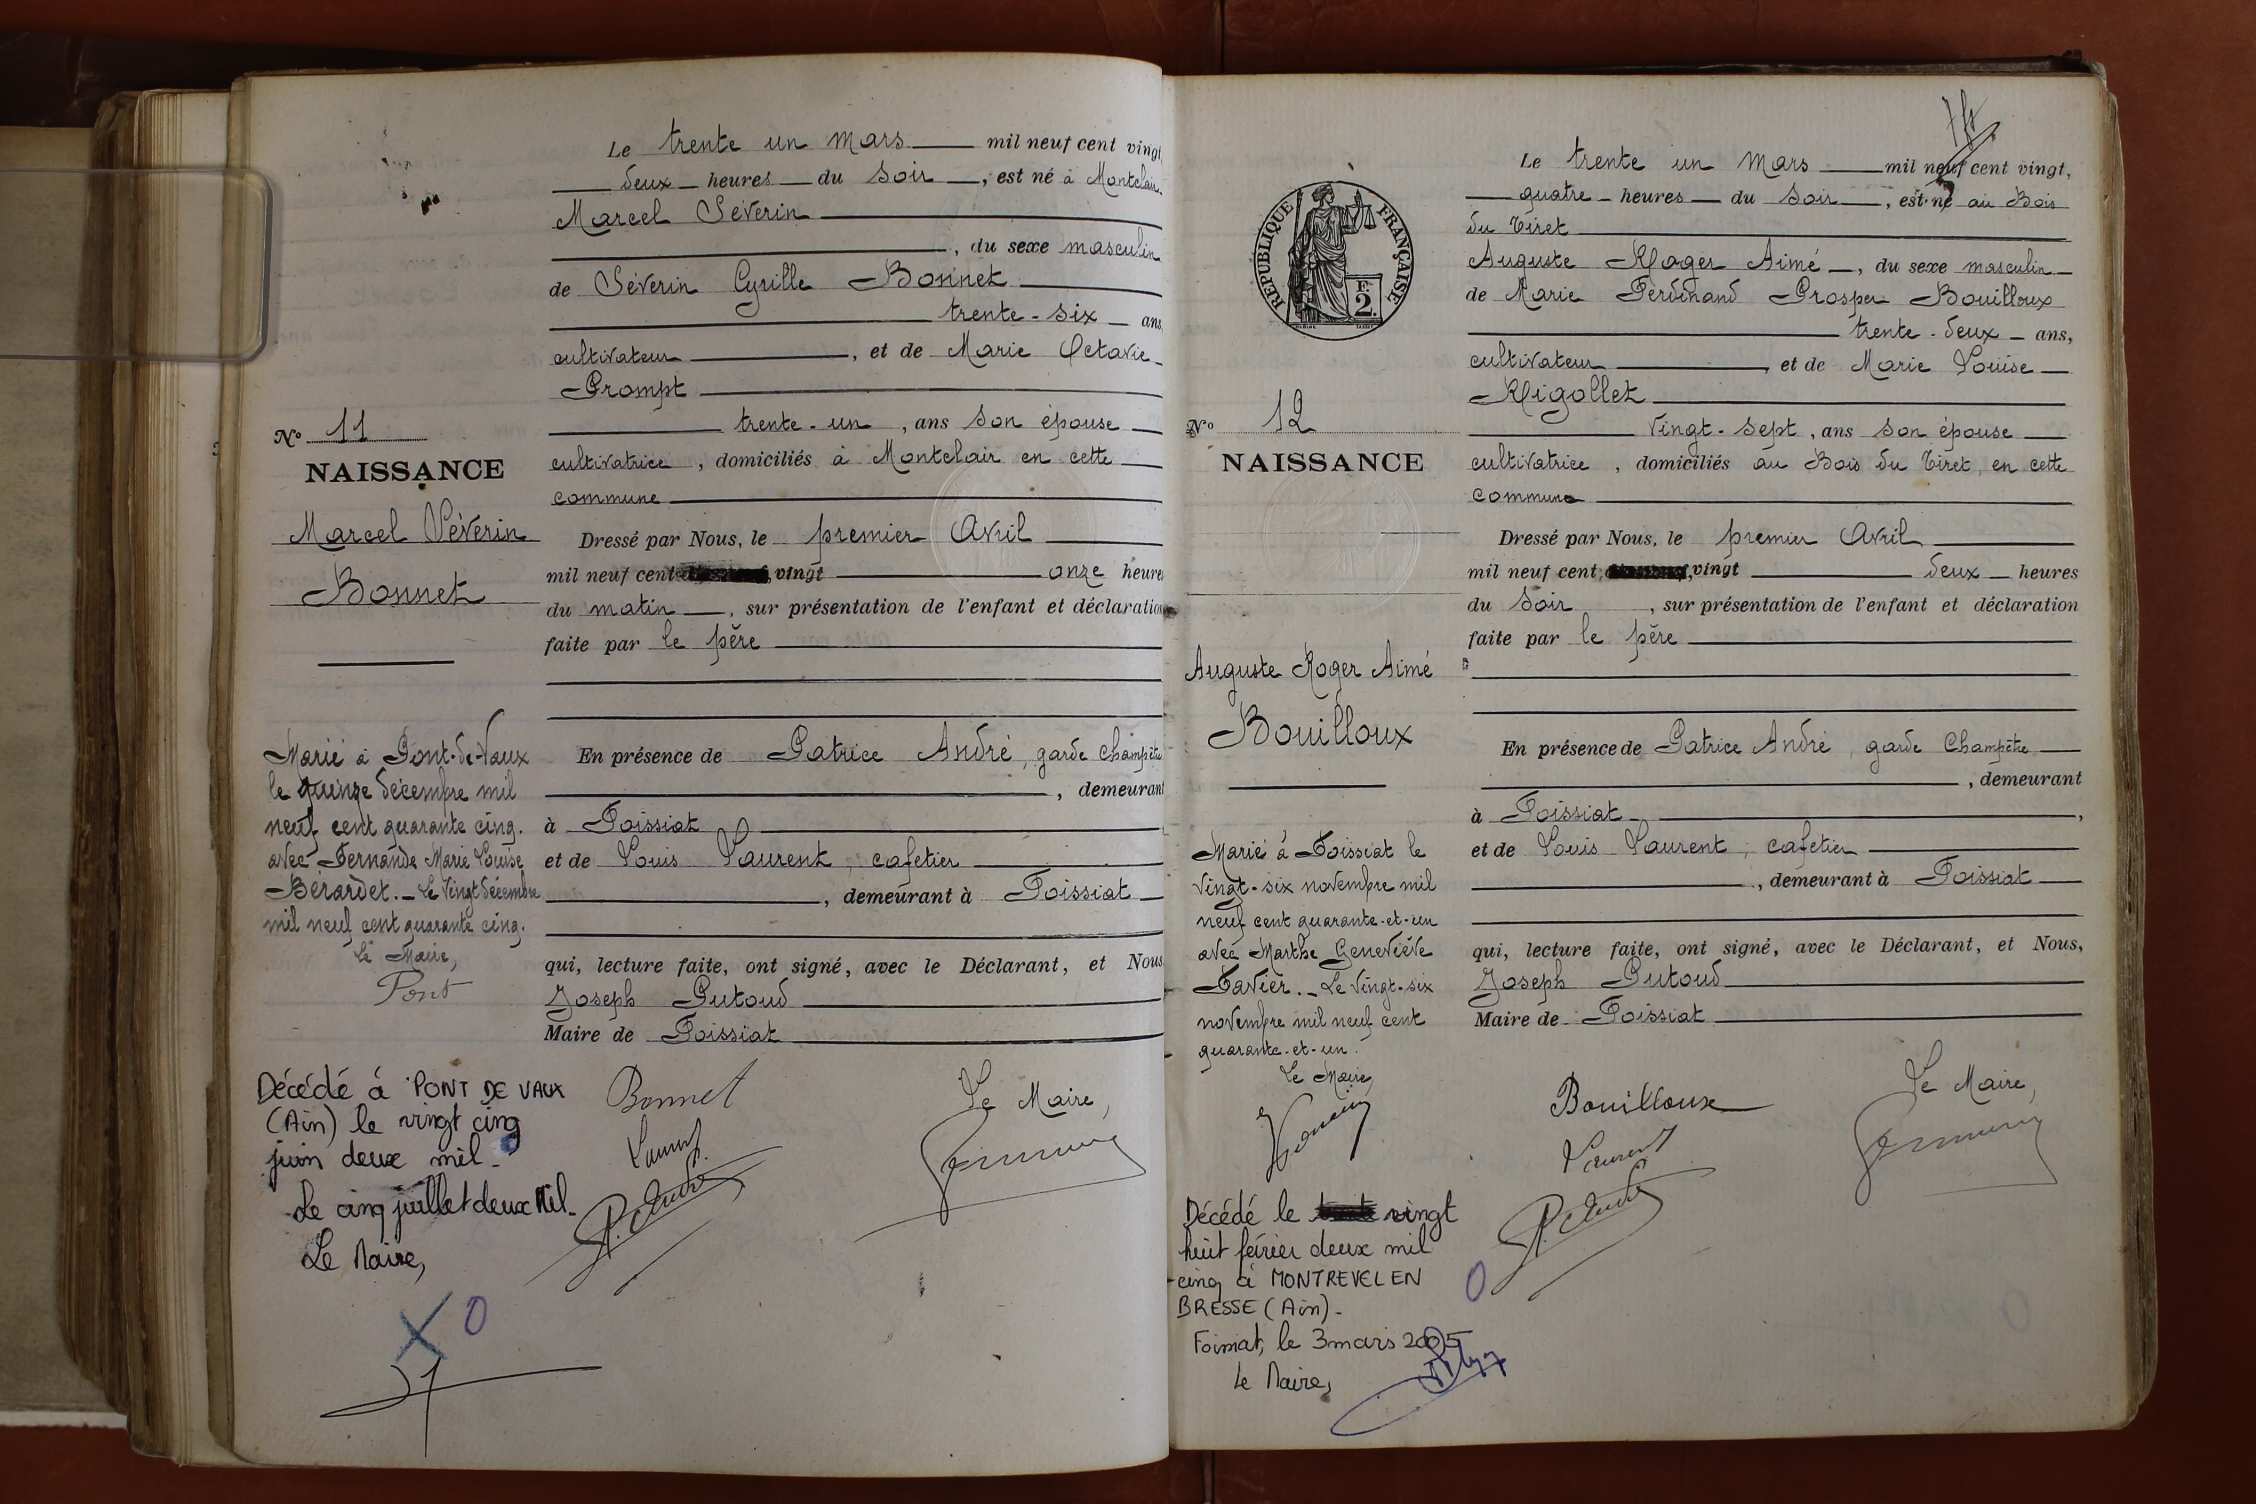 Le trente un mars mil neuf cent vingt,
deux heures du soir, est né à Montclair
Marcel Séverin
, du sexe masculin
de Séverin Cyrille Bonnet
trente-six ans,
cultivateur, et de Marie Octavie
Prompt
trente-un, ans son épouse
cultivatrice, domiciliés à Montclair en cette
commune
Dressé par Nous, le premier Avril
mil neuf cent vingt onze heures
du matin, sur présentation de l'enfant et déclaration
faite par le père
En présence de Patrice André, garde champêtre
, demeurant
à Foissiat
et de Louis Laurent, cafetier
, demeurant à Foissiat
qui, lecture faite, ont signé, avec le Déclarant, et Nous
Joseph Putoud
Maire de Foissiat
Bonnet
Le Maire,
Laurent
P. André
No 11
NAISSANCE
Marcel Séverin
Bonnet
Marié à Pont-de-Vaux
le quinze décembre mil
neuf cent quarante cinq.
avec Fernande Marie Louise
Bérardet._ Le Vingt décembre
mil neuf cent quarante cinq.
Le Maire,
Pont
Décédé à PONT DE VAUX
(Ain) le vingt cinq
juin deux mil_
Le cinq juillet deux Mil_
Le Maire,
X 0
Le trente un Mars mil neuf cent vingt,
quatre heures du soir, est né au Bois
du Tiret
Auguste Roger Aimé, du sexe masculin
de Marie Ferdinand Prosper Bouilloux
trente-deux ans,
cultivateur, et de Marie Louise
Rigollet
vingt-sept, ans son épouse
cultivatrice, domiciliés au Bois du Tiret, en cette
commune
Dressé par Nous, le premier Avril
mil neuf cent, vingt deux heures
du soir, sur présentation de l'enfant et déclaration
faite par le père
En présence de Patrice André, garde Champêtre
, demeurant
à Foissiat,
et de Louis Laurent, cafetier
, demeurant à Foissiat
qui, lecture faite, ont signé, avec le Déclarant, et Nous,
Joseph Putoud
Maire de Foissiat
Bouilloux
Le Maire,
Laurent
P. André
RÉPUBLIQUE FRANÇAISE
F.
2.
No 12
NAISSANCE
Auguste Roger Aimé
Bouilloux
Marié à Foissiat le
vingt-six novembre mil
neuf cent quarante-et-un
avec Marthe Geneviève
Favier._ Le Vingt-six
novembre mil neuf cent
quarante-et-un.
Le Maire,
Décédé le vingt
huit février deux mil
cinq à MONTREVEL EN
BRESSE (Ain)_
Foissiat, le 3 mars 2005
Le Maire,
0